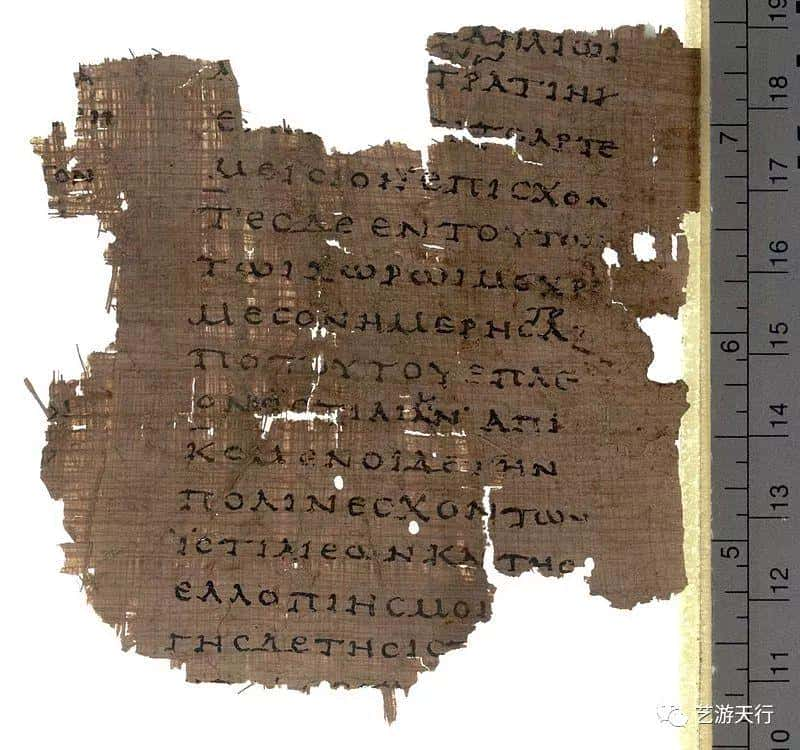 ΑΗΛΙΩΙ
ΤΡΑΤΙΗ
ΠΙΤΟΑΡΤΕ
ΜΕΙCΙΟΝ ΕΠΙCΧΟΝ
ΤΕCΔΕ ΕΝΤΟΥΤΩΙ
ΤΩΙΧΩΡΩΙΜΕΧΡΙ
ΜΕCΟΝΗΜΕΡΗCΑ
ΠΟΤΟΥΤΟΥ ΕΠΛΕ
ΟΝΕCΤΙΑΙΗΝ ΑΠΙ
ΚΟΜΕΝΟΙΔΕΤΗΝ
ΠΟΛΙΝΕCΧΟΝΤΩΝ
ΙCΤΙΑΙΕΩΝΚΑΙΤΗC
ΕΛΛΟΠΙΗCΜΟΙ
ΓΗCΔΕΤΗCΙC
7
6
5
19
18
17
16
15
14
13
12
11
10
艺游天行